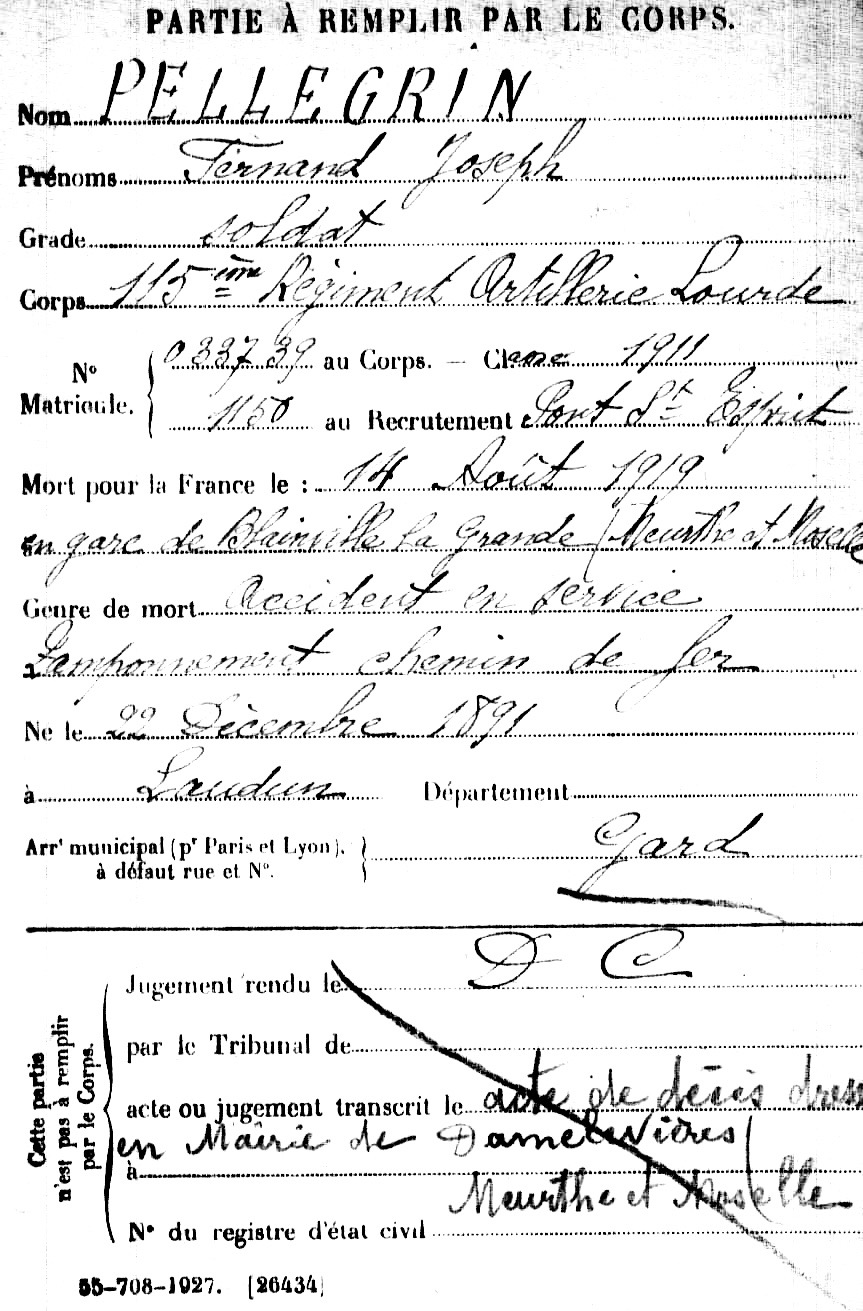 PARTIE À REMPLIR PAR LE CORPS.
Nom PELLEGRIN
Prénoms Fernand Joseph
Grade soldat
Corps 115ème Régiment Artillerie Lourde
N° Matricule. 033739 au Corps. — Classe 1911
1150 au Recrutement Pont St Esprit
Mort pour la France le : 14 Août 1919
en gare de Blainville la Grande (Meurthe et Moselle
Genre de mort Accident en service
Tamponnement chemin de fer
Né le 22 Décembre 1891
à Laudun Département
Arrt municipal (pr Paris et Lyon), à défaut rue et N°. Gard
D C
Cette partie n'est pas à remplir par le Corps.
Jugement rendu le
par le Tribunal de
acte ou jugement transcrit le acte de décès dress
en Mairie de Damelevières (
à Meurthe et Moselle
N° du registre d'état civil
55-708-1927. [26434]